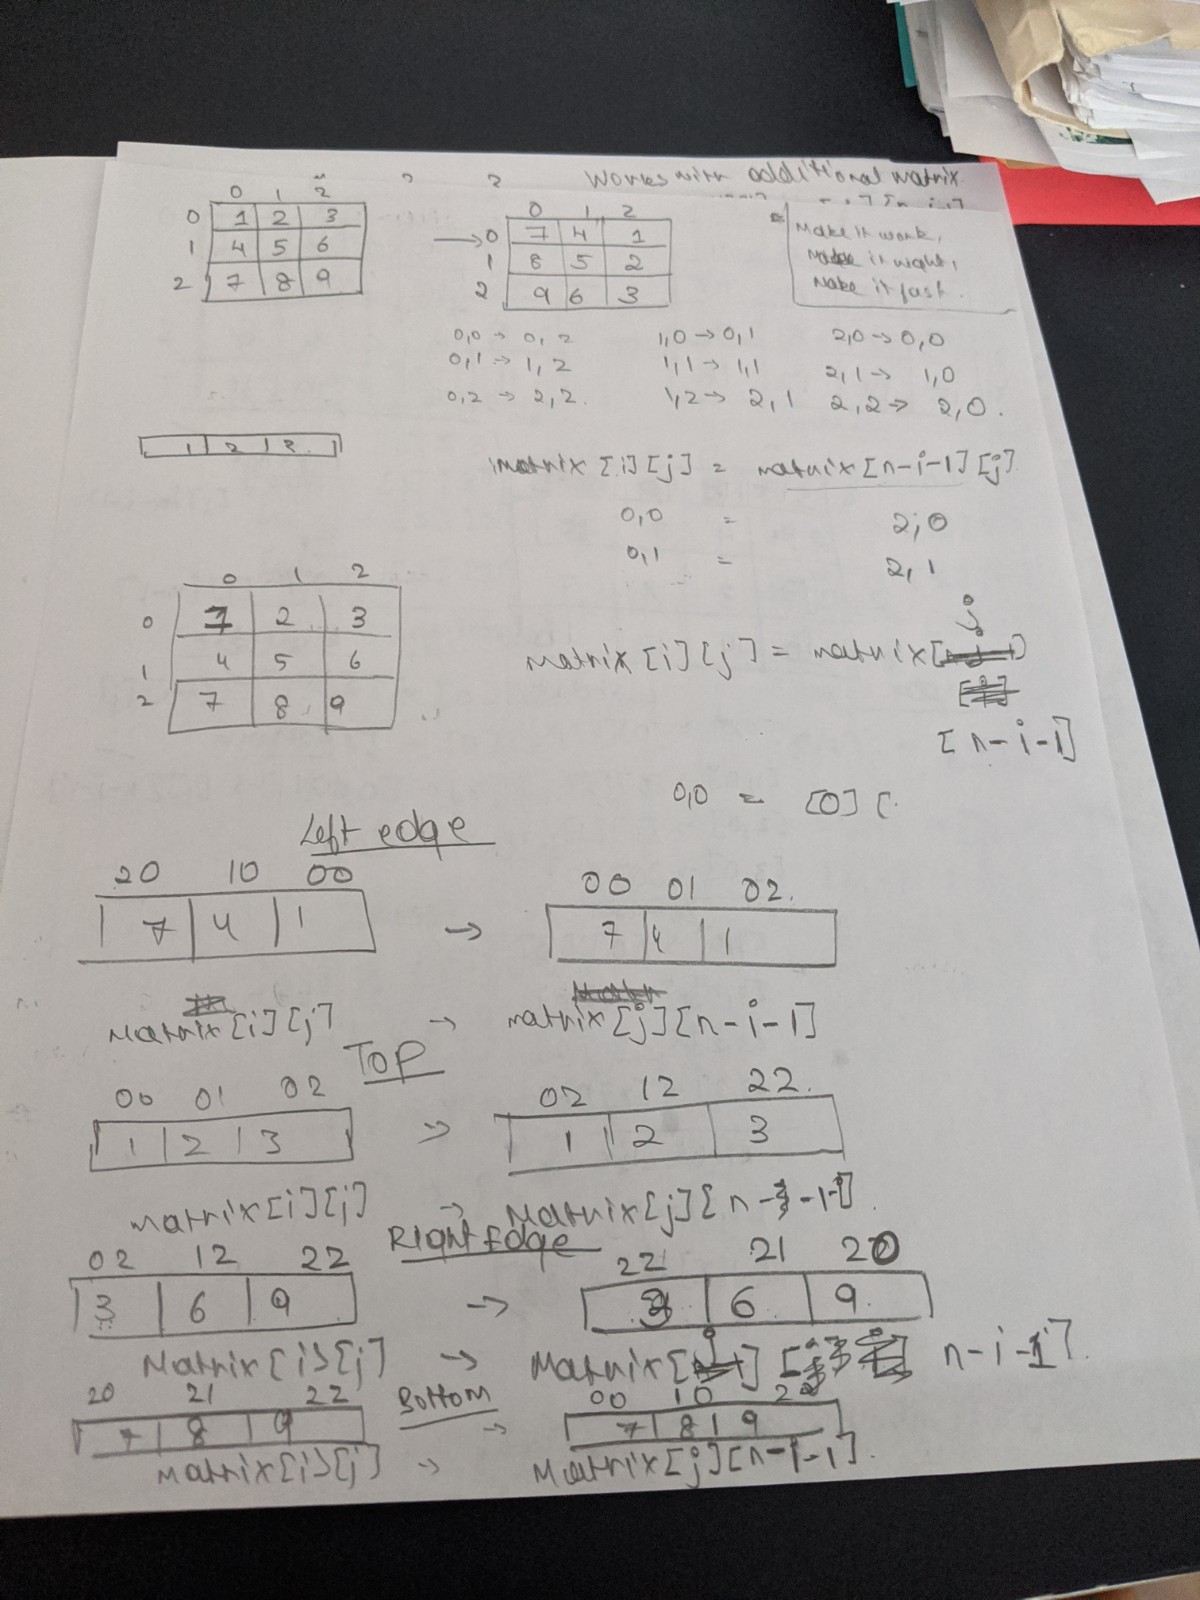 works with additional matrix
0 1 2
0 1 2 3
1 4 5 6
2 7 8 9
→ 0 1 2
0 7 4 1
1 8 5 2
2 9 6 3
Make it work,
Make it right,
Make it fast.
0,0 → 0, 2 1,0 → 0,1 2,0 → 0,0
0,1 → 1, 2 1,1 → 1,1 2,1 → 1,0
0,2 → 2,2. 1,2 → 2,1 2,2 → 2,0.
1 2 3
matrix [i][j] = matrix[n-i-1][j]
0,0 = 2,0
0,1 = 2,1
0 1 2
0 7 2 3
1 4 5 6
2 7 8 9
j
matrix [i][j] = matrix[
[n-i-1]
0,0 = [0] [
Left edge
20 10 00 00 01 02.
7 4 1 → 7 4 1
Matrix[i][j] → matrix[j][n-i-1]
TOP
00 01 02 02 12 22.
1 2 3 → 1 2 3
matrix[i][j] → Matrix[j][n-i-1].
Right Edge
02 12 22 22 21 20
3 6 9 → 3 6 9.
Matrix[i][j] → Matrix[j] [ n-i-1].
Bottom
20 21 22 00 10 20
7 8 9 → 7 8 9
Matrix[i][j] → Matrix[j][n-i-1].